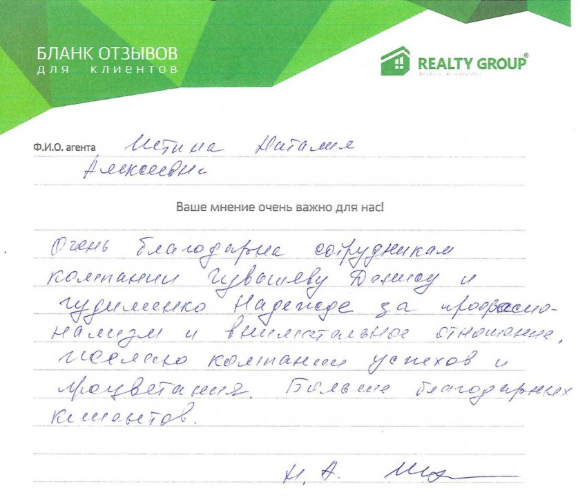 БЛАНК ОТЗЫВОВ
для клиентов
REALTY GROUP®
Ф.И.О. агента Истина Наталия
Алексеевна
Ваше мнение очень важно для нас!
Очень благодарна сотрудникам
компании Чувашеву Денису и
Гудименко Надежде за професио-
нализм и внимательное отношение.
Желаю компании успехов и
процветания. Больше благодарных
клиентов.
Н. А.